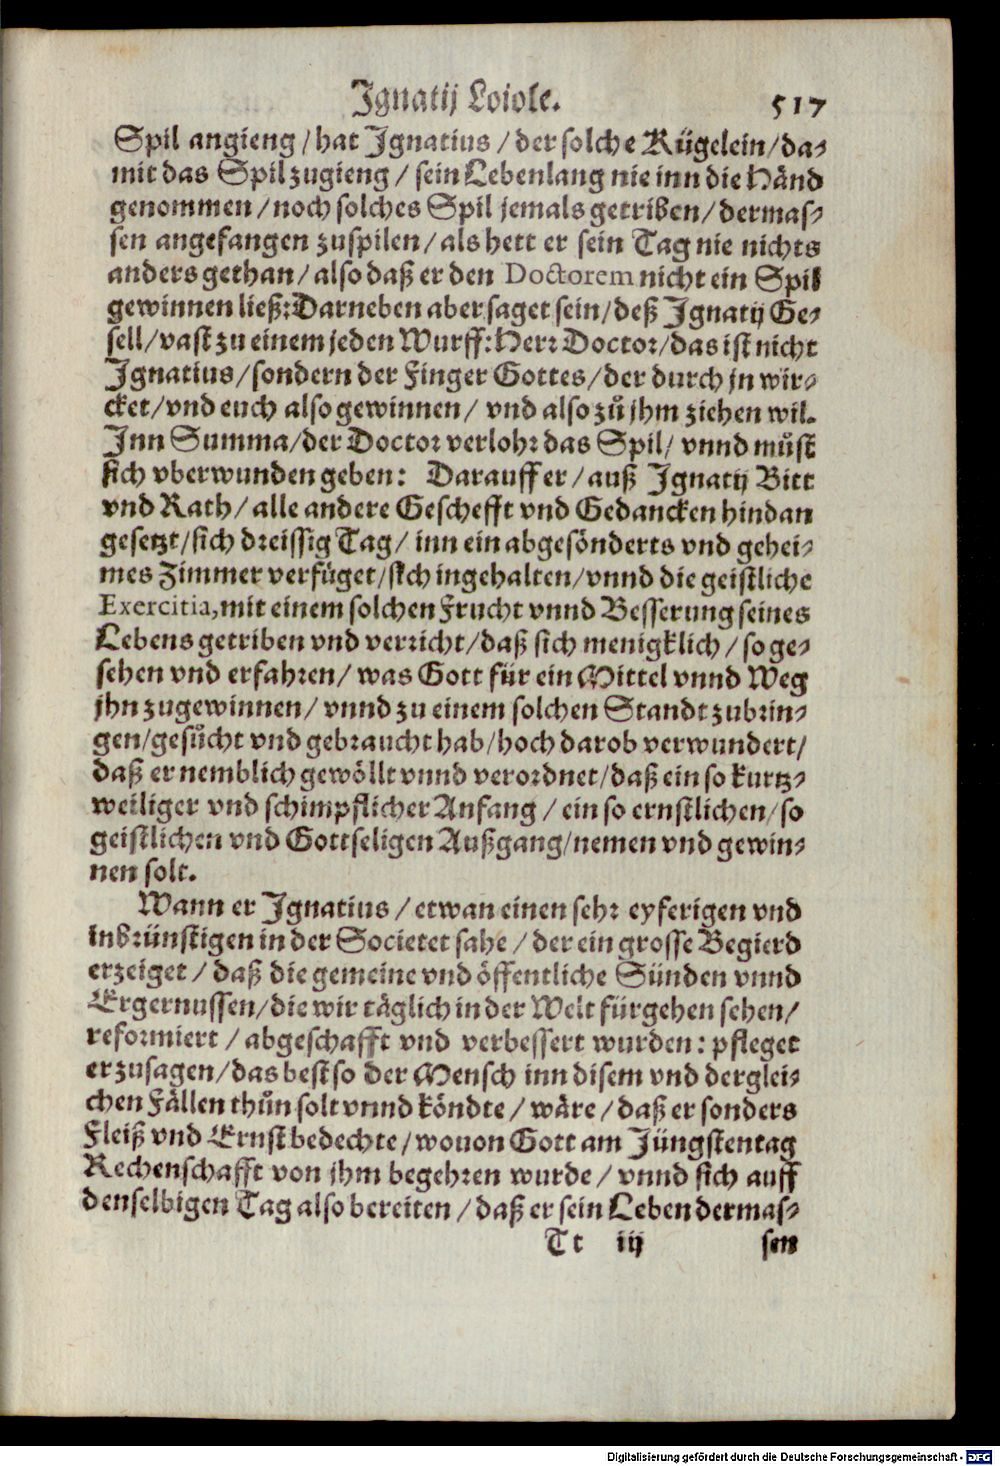 Ignatij Loiole. 517
Spil angieng / hat Ignatius / der solche Kügelein / da-
mit das Spil zugieng / sein Lebenlang nie inn die Händ
genommen / noch solches Spil jemals getriben / dermas-
sen angefangen zuspilen / als hett er sein Tag nie nichts
anders gethan / also daß er den Doctorem nicht ein Spil
gewinnen ließ: Darneben aber saget sein / deß Ignatij Ge-
sell / vast zu einem jeden Wurff: Herr Doctor / das ist nicht
Ignatius / sondern der Finger Gottes / der durch jn wir-
cket / vnd euch also gewinnen / vnd also zů jhm ziehen wil.
Inn Summa / der Doctor verlohr das Spil / vnnd můst
sich vberwunden geben: Darauff er / auß Ignatij Bitt
vnd Rath / alle andere Geschefft vnd Gedancken hindan
gesetzt / sich dreissig Tag / inn ein abgesönderts vnd gehei-
mes Zimmer verfüget / sich ingehalten / vnnd die geistliche
Exercitia, mit einem solchen Frucht vnnd Besserung seines
Lebens getriben vnd verricht / daß sich menigklich / so ge-
sehen vnd erfahren / was Gott für ein Mittel vnnd Weg
jhn zugewinnen / vnnd zu einem solchen Standt zubrin-
gen / gesůcht vnd gebraucht hab / hoch darob verwundert /
daß er nemblich gewöllt vnnd verordnet / daß ein so kurtz-
weiliger vnd schimpflicher Anfang / ein so ernstlichen / so
geistlichen vnd Gottseligen Außgang / nemen vnd gewin-
nen solt.
Wann er Ignatius / etwan einen sehr eyferigen vnd
inbrünstigen in der Societet sahe / der ein grosse Begierd
erzeiget / daß die gemeine vnd öffentliche Sünden vnnd
Ergernussen / die wir täglich in der Welt fürgehen sehen /
reformiert / abgeschafft vnd verbessert wurden: pfleget
er zusagen / das best so der Mensch inn disem vnd derglei-
chen Fällen thůn solt vnnd köndte / wäre / daß er sonders
Fleiß vnd Ernst bedechte / wouon Gott am Jüngstentag
Rechenschafft von jhm begehren wurde / vnnd sich auff
denselbigen Tag also bereiten / daß er sein Leben dermas-
Tt iij sen
Digitalisierung gefördert durch die Deutsche Forschungsgemeinschaft - DFG